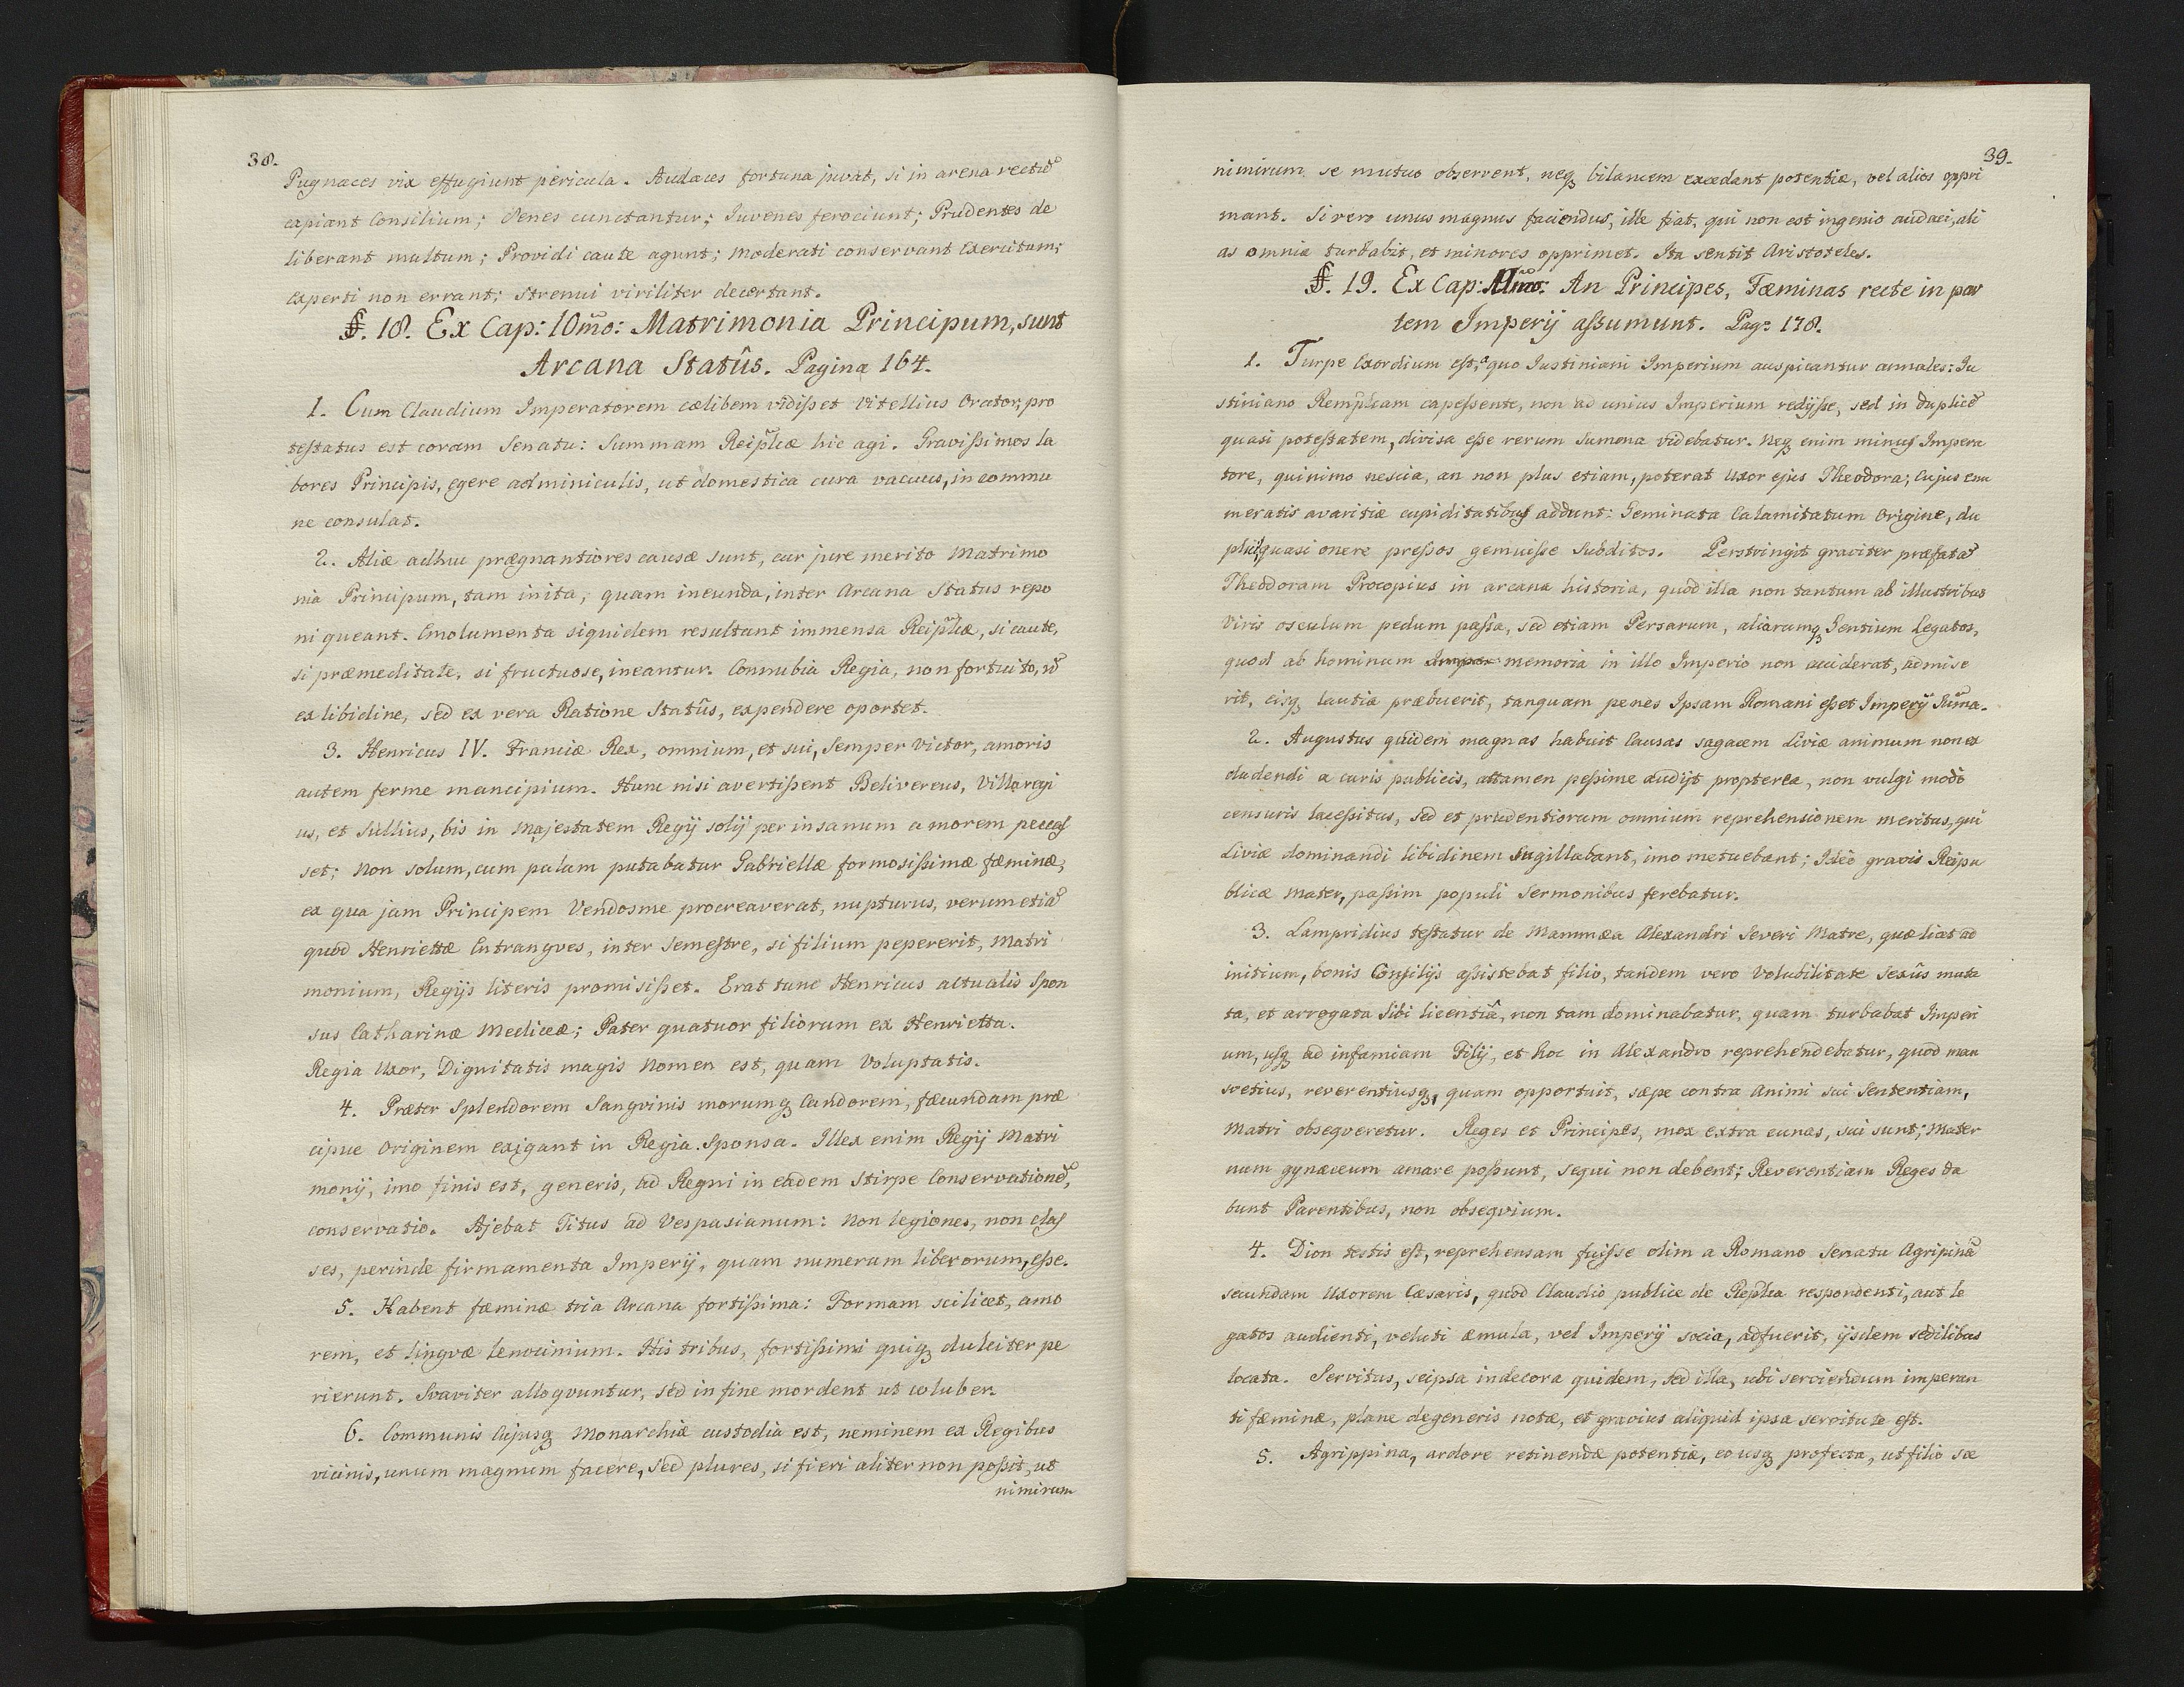 38.
Pugnaces vix effugiunt pericula. Audaces fortuna juvat, si in arena rectũ
capiant Consilium; Senes cunctantur; Iuvenes ferociunt; Prudentes de
liberant multum; Providi caute agunt; Moderati conservant Exercitum;
Experti non errant; Strenui viriliter decertant.
§. 18. Ex Cap: 10mo: Matrimonia Principum, sunt
Arcana Statûs. Pagina 164.
1. Cum Claudium Imperatorem cælibem vidisset Vitellius Orator, pro
testatus est coram Senatu: Summam Reipłicæ hic agi. Gravissimos la
bores Principis, egere adminiculis, ut domestica cura vacuus, in commu
ne consulat.
2. Aliæ adhuc prægnantiores causæ sunt, cur jure merito Matrimo
nia Principum, tam inita, quam ineunda, inter Arcana Status repo
ni queant. Emolumenta siquidem resultant immensa Reipłicæ, si caute,
si præmeditate, si fructuose, ineantur. Connubia Regia, non fortuito, nõ
ex libidine, sed ex vera Ratione Statûs, expendere oportet.
3. Henricus IV. Franciæ Rex, omnium, et sui, Semper Victor, amoris
autem ferme mancipium. Hunc nisi avertissent Belivereus, Villaregi
us, et Sullius, bis in Majestatem Regij solij per insanum amorem peccas
set; Non solum, cum palam putabatur Gabriellæ formosissimæ fæminæ,
ex qua jam Principem Vendosme procreaverat, nupturus, verum etiã
quod Henriettæ Entrangves, inter Semestre, si filium pepererit, Matri
monium, Regijs literis promisisset. Erat tunc Henricus actualis Spon
sus Catharinæ Mediceæ; Pater quatuor filiorum ex Henrietta.
Regia Uxor, Dignitatis magis Nomen est, quam Voluptatis.
4. Præter Splendorem Sangvinis morumq Candorem, fæcundam præ
cipue Originem exigant in Regia Sponsa. Illex enim Regij Matri
monij, imo finis est, generis, ad Regni in eadem Stirpe Conservationẽ,
conservatio. Ajebat Titus ad Vespasianum: Non legiones, non clas
ses, perinde firmamenta Imperij, quam numerum liberorum, esse.
5. Habent fæminæ tria Arcana fortissima: Formam scilicet, amo
rem, et lingvæ lenocinium. His tribus, fortissimi quiq dulciter pe
rierunt. Svaviter alloqvuntur, sed in fine mordent ut coluber.
6. Communis Cujusq Monarchiæ custodia est, neminem ex Regibus
vicinis, unum magnum facere, sed plures, si fieri aliter non possit, ut
nimirum
39.
nimirum se mutuo observent, neq bilancem excedant potentiæ, vel alios oppri
mant. Si vero unus magnus faciendus, ille fiat, qui non est ingenio audaci, ali
as omnia turbabit, et minores opprimet. Ita sentit Aristoteles.
§. 19. Ex Cap: 11mo: An Principes, Fæminas recte in par
tem Imperij assumunt. Pag: 178.
1. Turpe Exordium est, a quo Iustiniani Imperium auspicantur annales: Iu
stiniano Rempłicam capessente, non ad unius Imperium redijsse, sed in duplicẽ
quasi potestatem, divisa esse rerum Summa videbatur. Neq enim minus Impera
tore, quinimo nescia, an non plus etiam, poterat Uxor ejus Theodora; Cujus enu
meratis avaritiæ cupiditatibus addunt: Geminata Calamitatum Origine, du
plici quasi onere pressos gemuisse Subditos. Perstringit graviter præfatã
Theodoram Procopius in arcana historia, quod illa non tantum ab illustribus
Viris osculum pedum passa, sed etiam Persarum, aliarumq Gentium Legatos,
quod ab hominum Impor memoria in illo Imperio non acciderat, admise
rit, eisq lautia præbuerit, tanquam penes Ipsam Romani esset Imperij Summa.
2. Augustus quidem magnas habuit Causas sagacem Liviæ animum non ex
cludendi a curis publicis, attamen pessime audijt propterea, non vulgi modo
censuris lacessitus, sed et prudentiorum omnium reprehensionem meritus, qui
Liviæ dominandi libidinem sugillabant, imo metuebant; Ideo gravis Reipu
blicæ Mater, passim populi Sermonibus ferebatur.
3. Lampridius testatur de Mammæa Alexandri Severi Matre, quæ licet ad
initium, bonis Consilijs assistebat filio, tandem vero Volubilitate Sexûs muta
ta, et arrogata Sibi licentiâ, non tam dominabatur, quam turbabat Imperi
um, usq ad infamiam Filij, et hoc in Alexandro reprehendebatur, quod man
svetius, reverentiusq, quam opportuit, sæpe contra Animi sui Sententiam,
Matri obseqveretur. Reges et Principes, mox extra cunas, sui sunt; Mater
num gynæceum amare possunt, sequi non debent; Reverentiam Reges da
bunt Parentibus, non obseqvium.
4. Dion testis est, reprehensam fuisse olim a Romano Senatu Agripinã
secundam Uxorem Cæsaris, quod Claudio publice de Repłica respondenti, aut le
gatos audienti, veluti æmula, vel Imperij socia, adfuerit, ijsdem sedilibus
locata. Servitus, seipsa indecora quidem, sed illa, ubi serviendum imperan
ti fæminæ, plane degeneris notæ, et gravius aliquid ipsa servitute est.
5. Agrippina, ardore retinendæ potentiæ, eo usq profecta, ut filio sæ